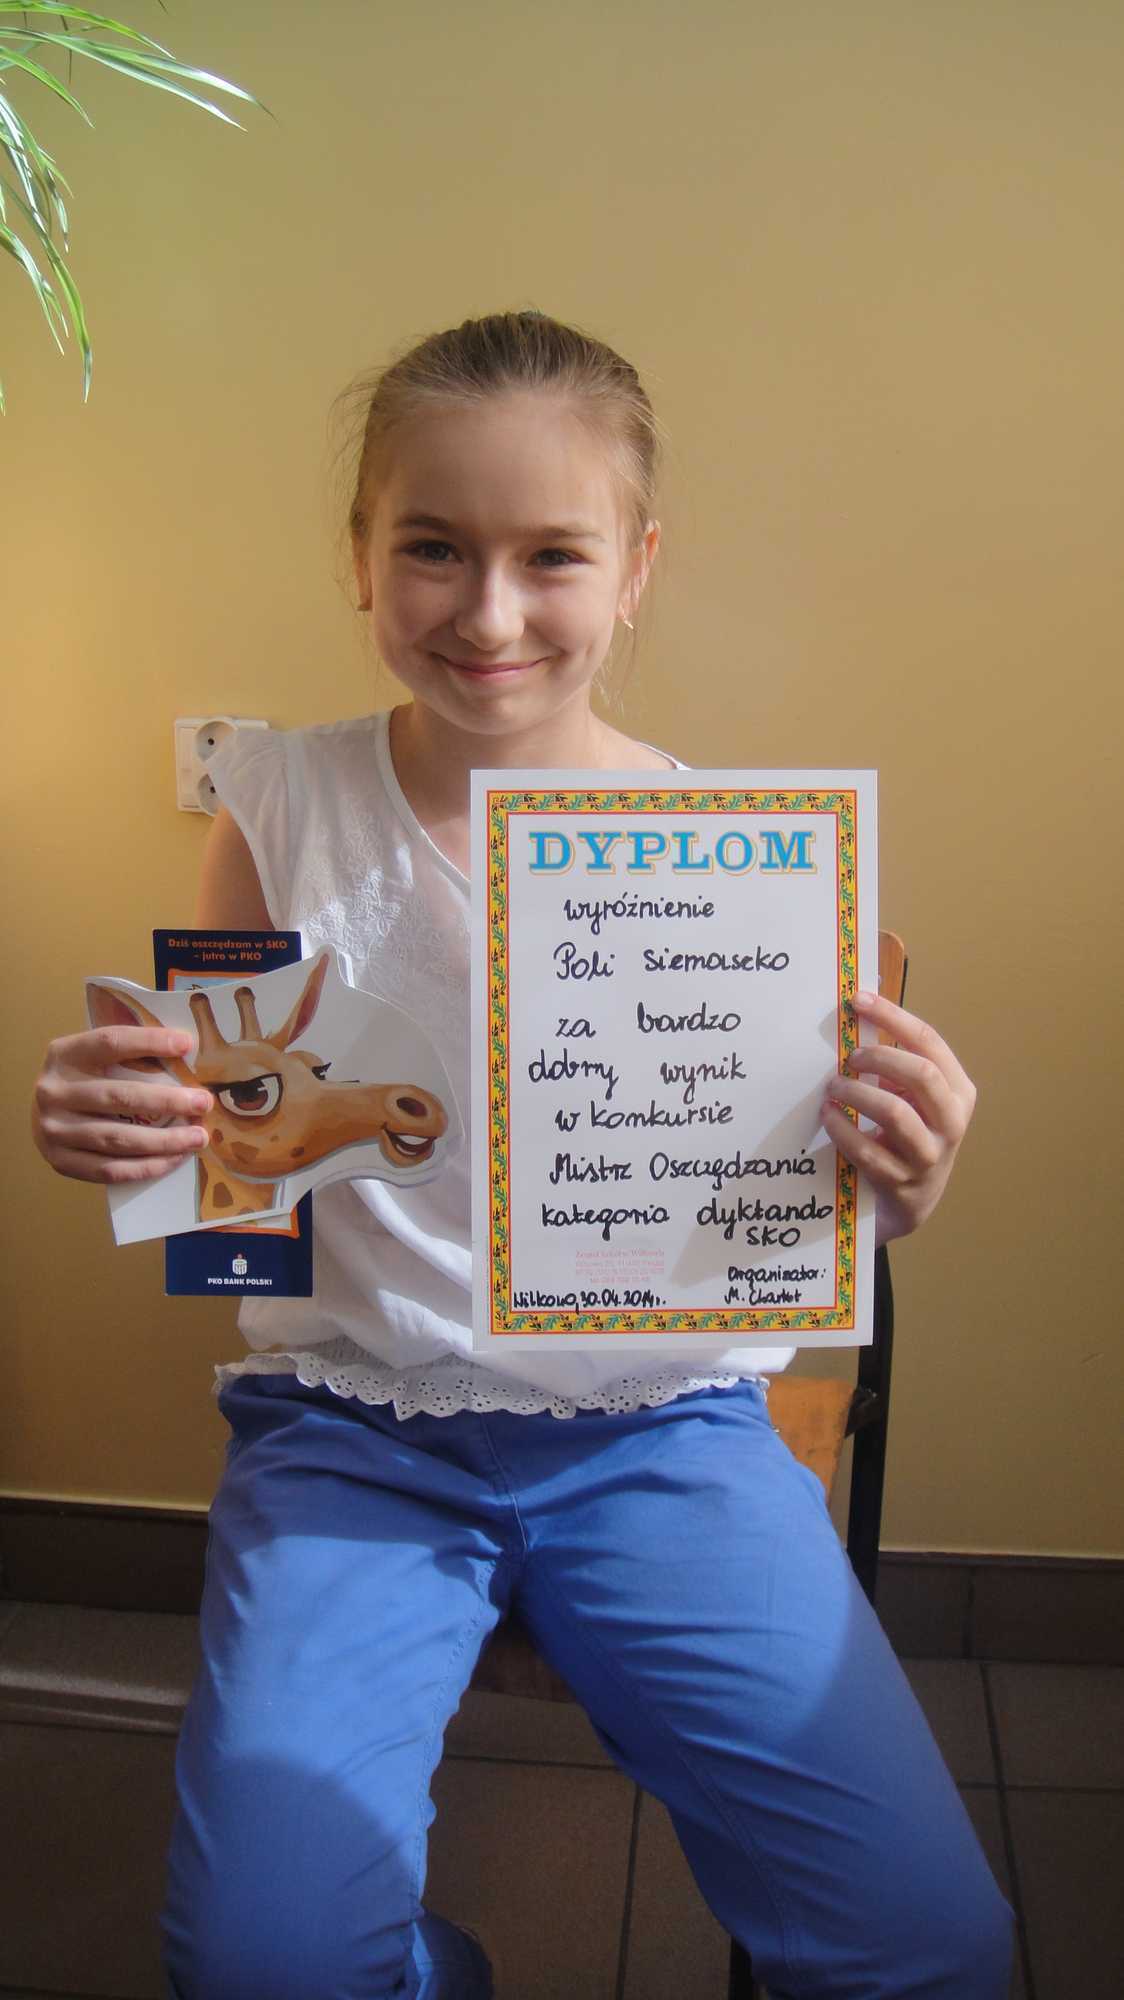 Dziś oszczędzam w SKO
– jutro w PKO
PKO BANK POLSKI
DYPLOM
wyróżnienie
Poli Siemaszko
za bardzo
dobry wynik
w konkursie
Mistrz Oszczędzania
kategoria dyktando
SKO
Organizator:
Wilkowo, 30.04.2014r.